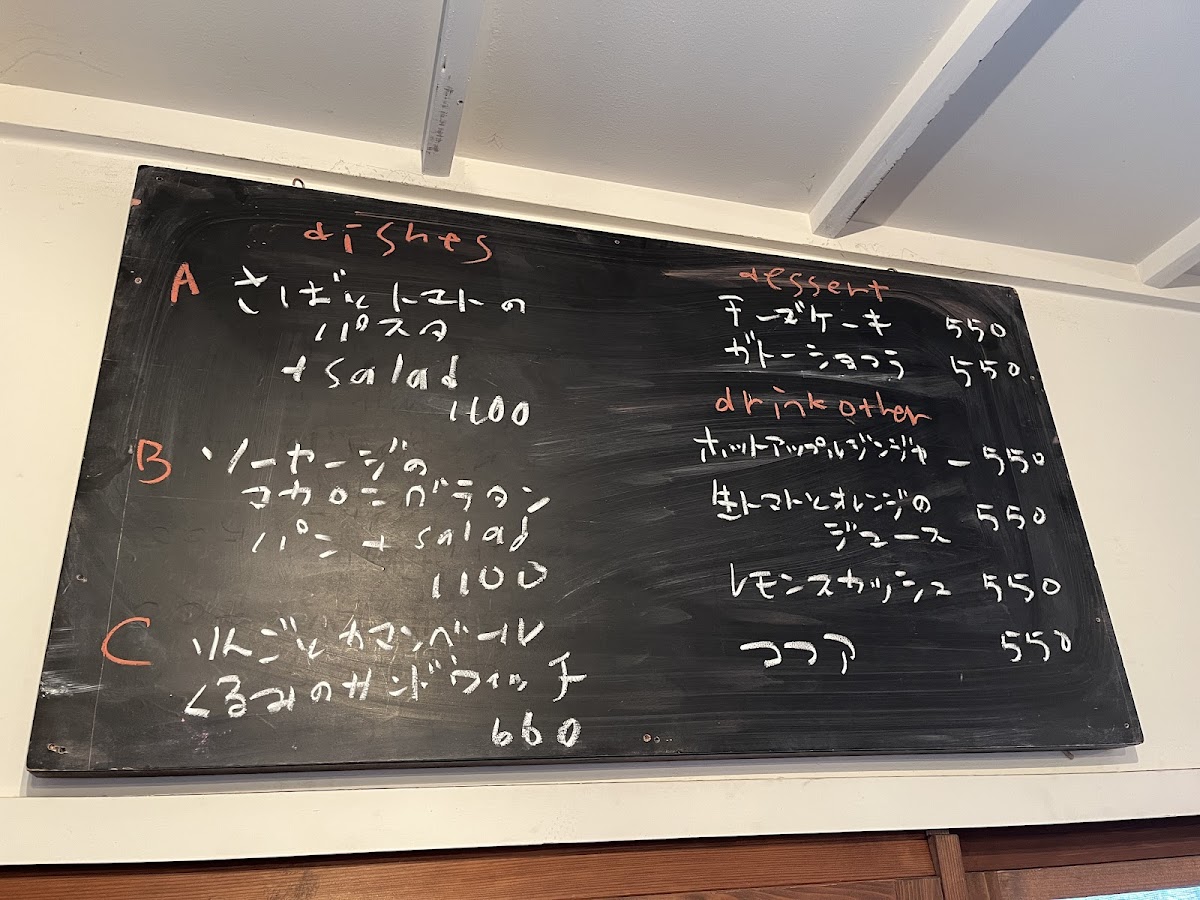 dishes
A さばとトマトの
パスタ
+salad
1100
B ソーセージの
マカロニグラタン
パン + salad
1100
C りんごとカマンベール
くるみのサンドウィッチ
660
dessert
チーズケーキ 550
ガトーショコラ 550
drink other
ホットアップルジンジャー 550
生トマトとオレンジの
ジュース 550
レモンスカッシュ 550
ココア 550